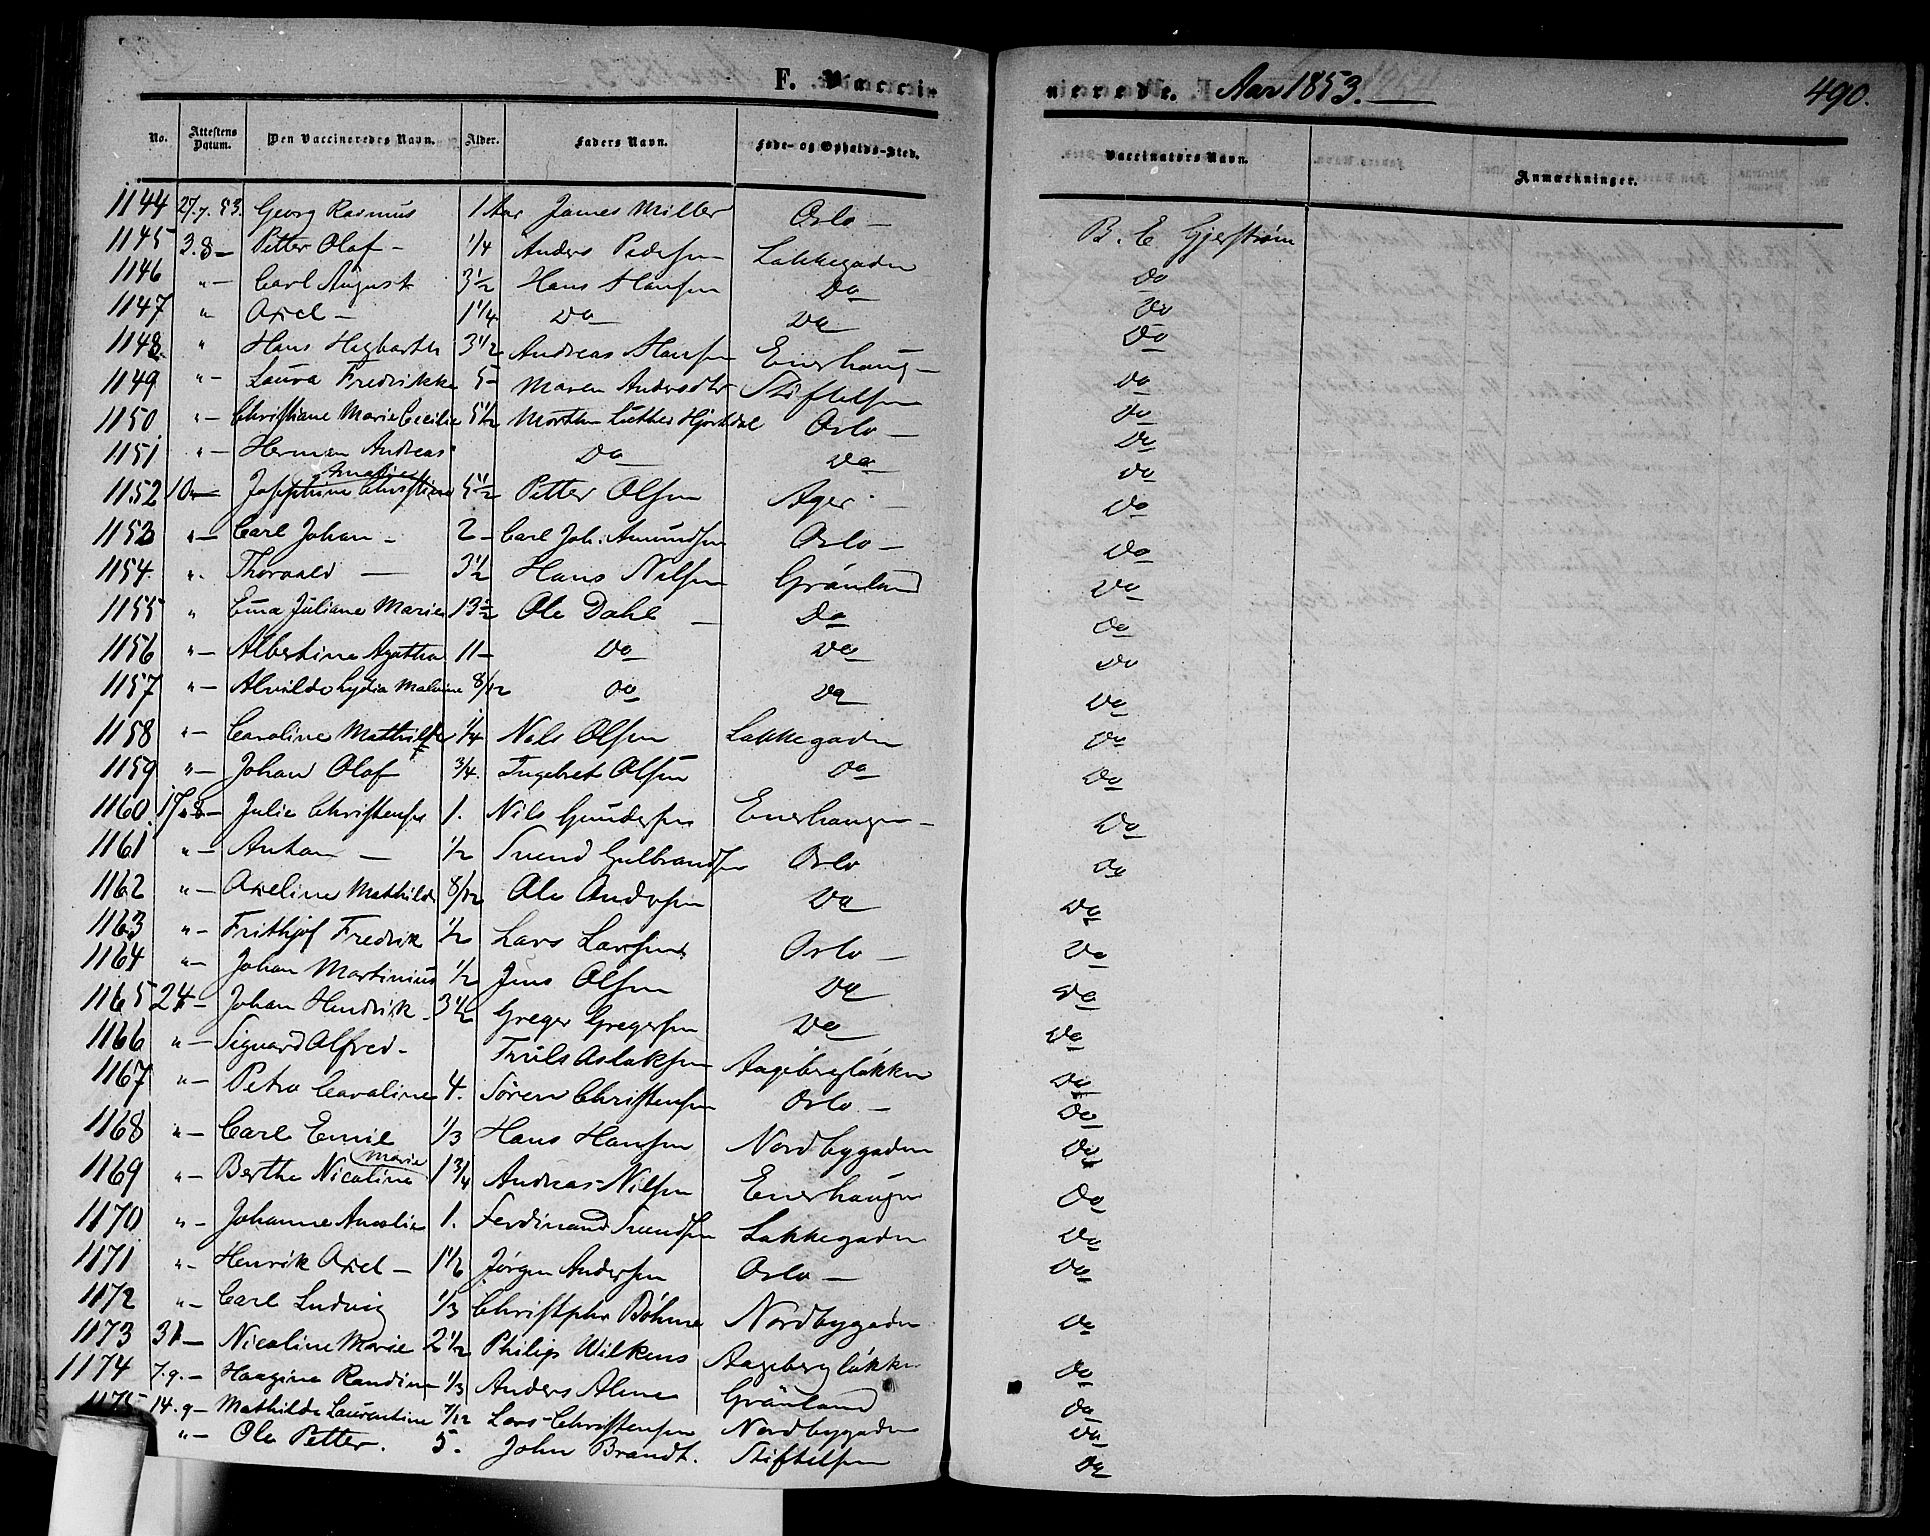 F. Vaccinerede. Aar 1853. — 490.
No. Attestens Datum. Den Vaccineredes Navn. Alder. Faders Navn. Føde- og Opholds-Sted. Vaccinatørs Navn. Anmærkninger.
1144 27.7.53. Georg Rasmus 1 Aar James Miller Oslo — B. E Gjerstrøm
1145 3.8— Petter Olaf — 1/4 Anders Pedersen Lakkegaden Do
1146 "— Carl August 3 1/2 Hans Hansen Do Do
1147 " Axel — 1 1/4 Do Do Do
1148. " Hans Hegbarth 3 1/2 Andreas Hansen Enerhaug — Do
1149 "— Laura Fredrikke 5— Maren Andersdtr Stiftelsen Do
1150 "— Christiane Marie Cecilie 5 1/2 Morthen Luther Hjortdal Oslo — Do
1151 "— Herman Andreas Do Do Do
1152 10— Josephine Amalie Christiane 5 1/2 Petter Olsen Ager — Do
1153 "— Carl Johan — 2— Carl Joh. Amundsen Oslo — Do
1154. ". Thorvald — 3 1/2 Hans Nilsen Grönland Do
1155 " Ema Juliane Marie 13 1/2 Ole Dahl — Do Do
1156 "— Albertine Agatha 11— Do Do Do
1157 "— Alvilde Lydia Malvine 8/12 Do Do Do
1158 "— Caroline Mathilde 1/4 Nils Olsen Lakkegaden Do
1159 "— Johan Olaf 3/4. Ingebret Olsen Do Do
1160. 17.8— Julie Christense 1. Nils Gundersen Enerhaugen — Do
1161 "— Anton — 1/2 Svend Gulbrandsen Oslo Do
1162 "— Axeline Mathilde 8/12 Ole Andersen Do Do
1163 "— Frithjof Fredrik 1/2 Lars Larsen Oslo — Do
1164 "— Johan Martinius 1/2 Jens Olsen Do Do
1165 24— Johan Hendrik — 3 1/2 Greger Gregersen Do Do
1166 "— Sigvard Alfred — Truls Aslaksen Aagebergløkken Do
1167 "— Petra Caroline 4. Sören Christensen Oslo — Do
1168 "— Carl Emil 1/3 Hans Hansen Nordbygaden Do
1169 "— Berthe Nicoline Marie 1 3/4 Andreas Nilsen Enerhaugen Do
1170 "— Johanne Amalie 1. Ferdinand Svendsen Lakkegaden Do
1171 "— Henrik Axel — 1 1/2 Jørgen Andersen Oslo — Do
1172 "— Carl Ludvig 1/3 Christopher Böhme Nordbygaden Do
1173 31— Nicoline Marie 2 1/2 Philip Wilkens Aagebergløkken Do
1174 7.9.— Haagine Randine 1/3 Anders Alme Grönland Do
1175 14.9— Mathilde Laurentine 7/12 Lars Christensen Nordbygaden Do
"— Ole Petter. 5. John Brandt. Stiftelsen Do